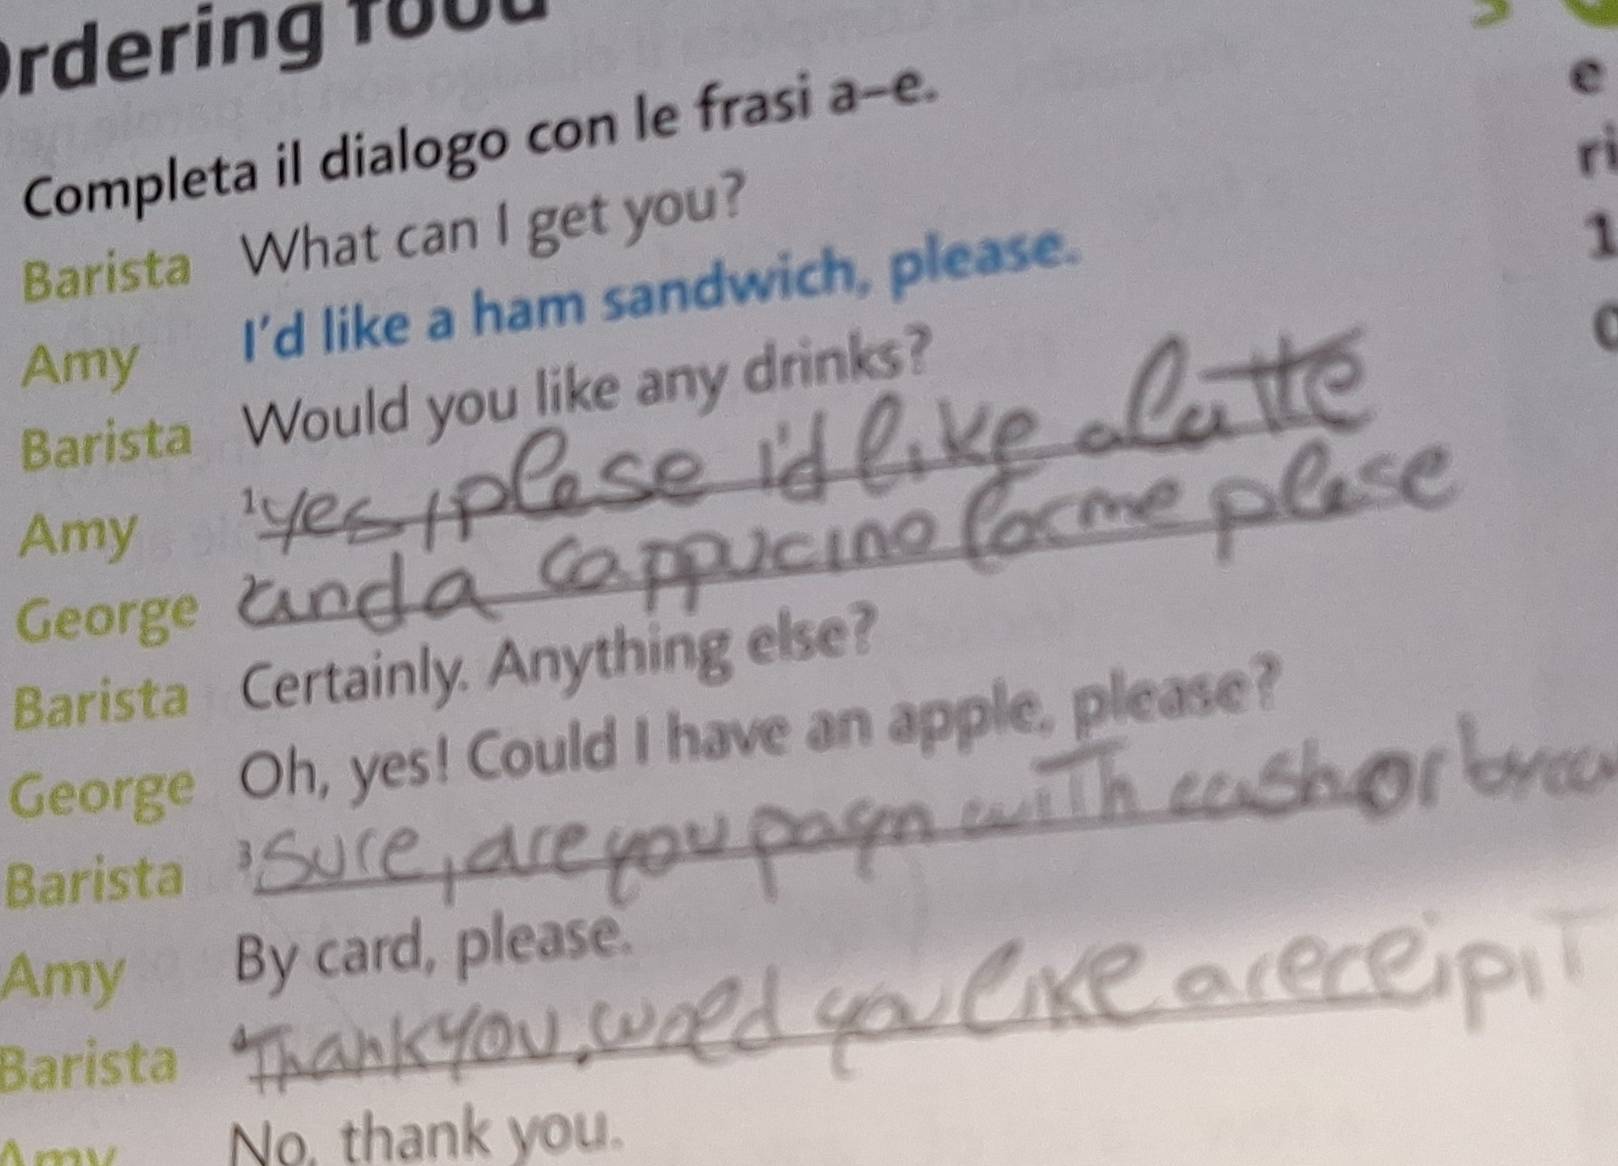 Ordering food
Completa il dialogo con le frasi a–e.
Barista What can I get you?
Amy I'd like a ham sandwich, please.
Barista Would you like any drinks?
Amy 1 yes, plese i'd like a latte
George 2 and a cappucino for me plese
Barista Certainly. Anything else?
George Oh, yes! Could I have an apple, please?
Barista 3 Sure, are you payn with cash or
Amy By card, please.
Barista 4 Thank you, woled you like a receipit
Amy No, thank you.
e
ri
1